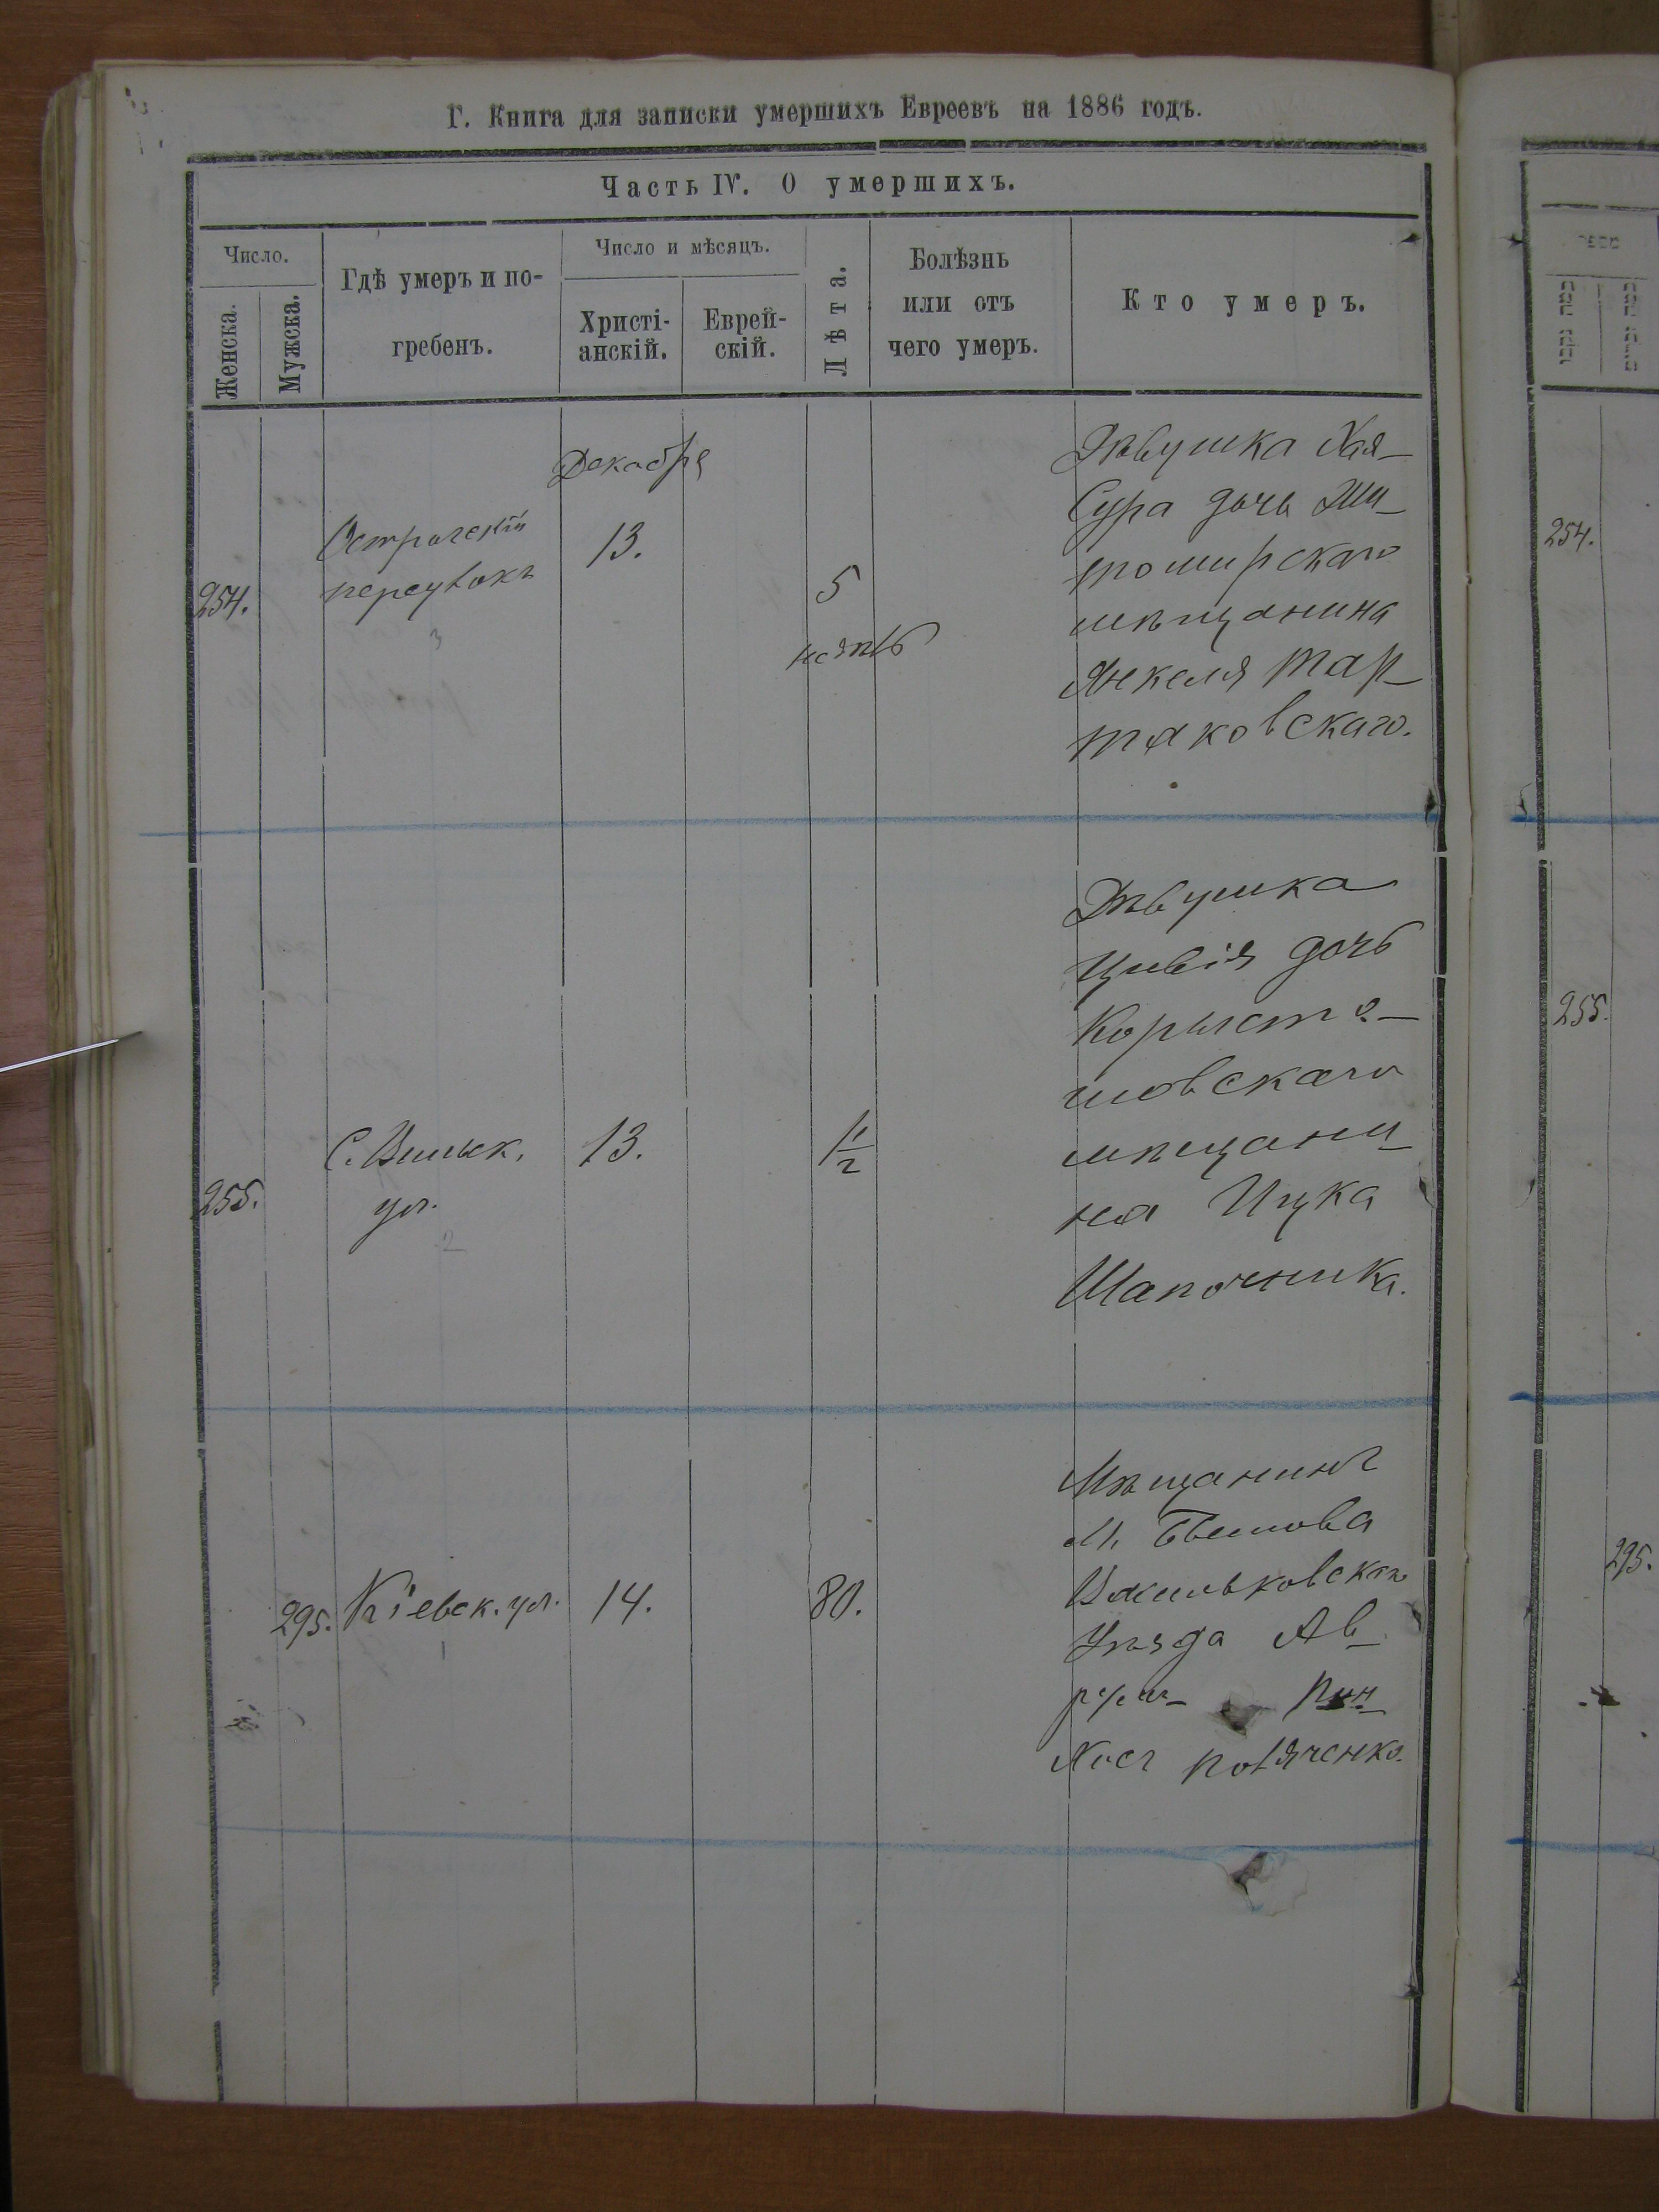 Г. Книга для записки умершихъ Евреевъ на 1886 годъ.
Часть IV. О умершихъ.
Число.
Женска.
Мужска.
Гдѣ умеръ и по-
гребенъ.
Число и мѣсяцъ.
Христі-
анскій.
Еврей-
скій.
Лѣта.
Болѣзнь
или отъ
чего умеръ.
Кто умеръ.
254.
переулокъ
Декабря
13.
5
Дѣвушка Хая-
Сура дочь Жи-
томирскаго
мѣщанина
Янкеля Тар-
таковскаго.
255.
С. Вильск.
ул.
13.
1/2
Дѣвушка
Цивія дочь
Коросты-
шовскаго
мѣщани-
на Ицка
Шапочника.
295.
Кіевск. ул.
14.
80.
Мѣщанинъ
М.
Уѣзда Ав-
Пин-
254.
255.
295.